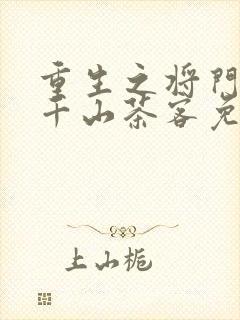 重生之将门
千山茶客免
上山栀